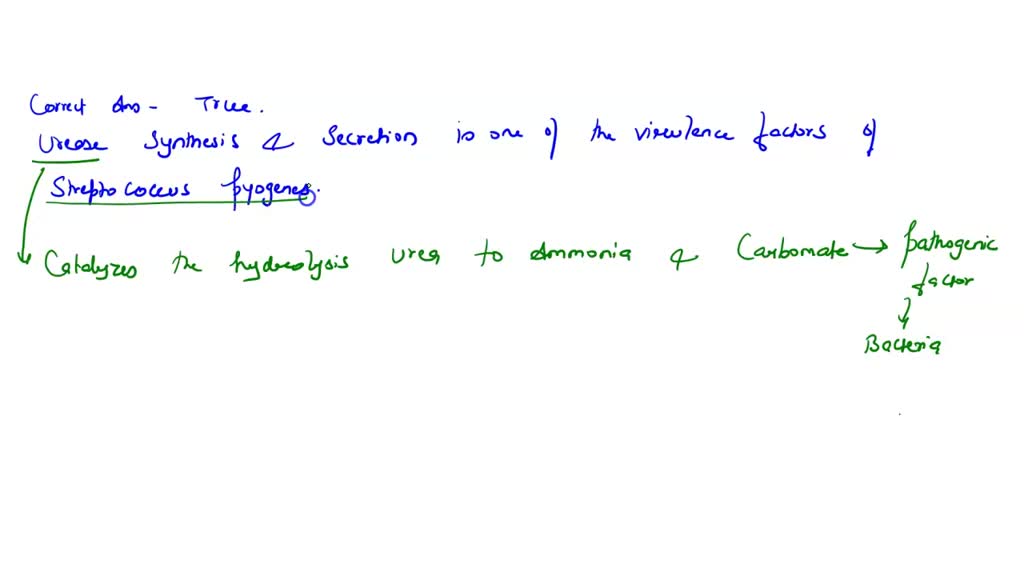 Correct Ans - True.
Urease Synthesis & Secretion is one of the virulence factors of
Streptococcus pyogenes.
Catalyzes the hydrolysis urea to Ammonia & Carbomate → pathogenic
factor
Bacteria